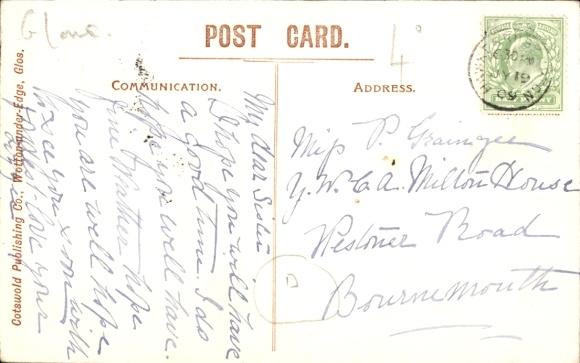 Glouc.
POST CARD.
4d
COMMUNICATION.
ADDRESS.
My dear Sister
I hope you will have
a Good time. I do
hope you will have.
fine Weather hope
you are well hope
with
love your
Miss P. Grainger
Y.W.C.A. Milton House
Westover Road
Bournemouth
Cotswold Publishing Co., Wotton-under-Edge, Glos.